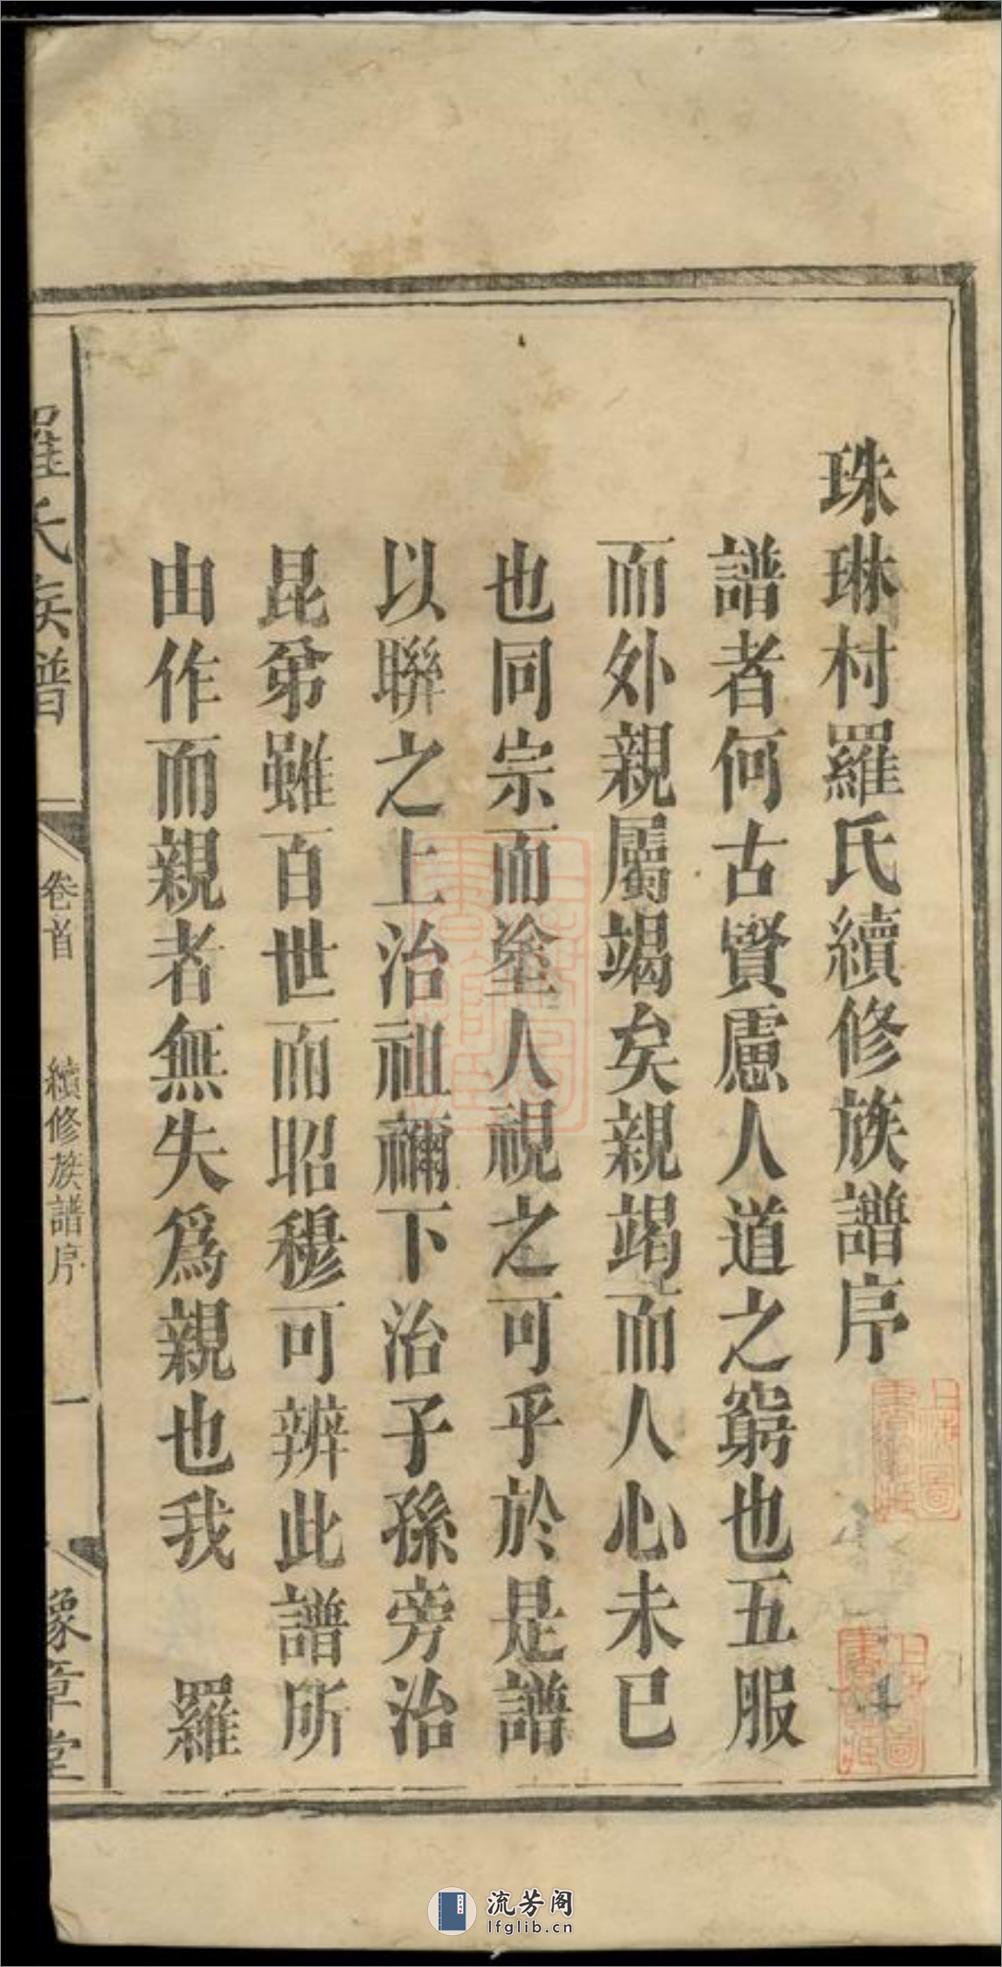 珠琳村羅氏續修族譜序
譜者何古賢慮人道之窮也五服
而外親屬竭矣親竭而人心未已
也同宗而塗人視之可乎於是譜
以聯之上治祖禰下治子孫旁治
昆弟雖百世而昭穆可辨此譜所
由作而親者無失為親也我 羅
羅氏族譜
卷首
續修族譜序
一
豫章堂
流芳阁
lfglib.cn